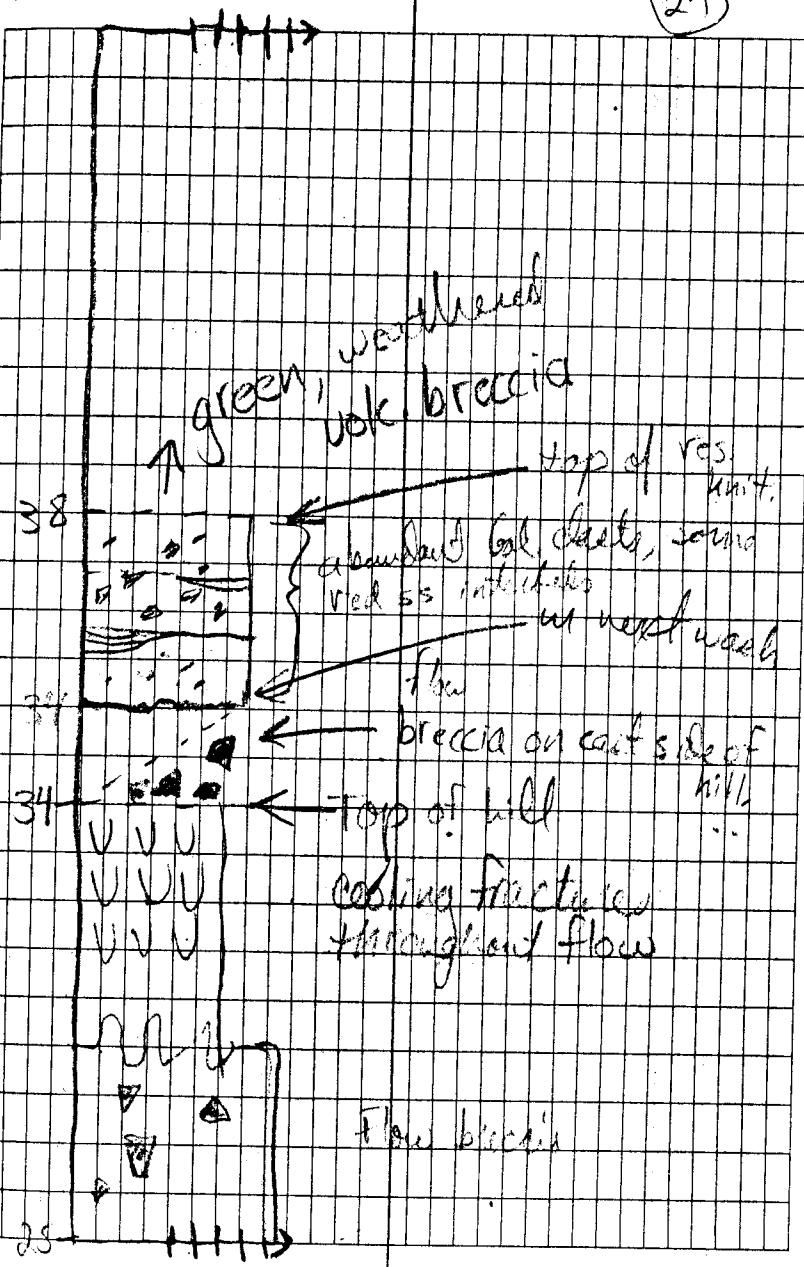 green, weathered
volc. breccia
top of res.
unit.
38
abundant clasts, some
red ss
in next wash
flow
breccia on east side of
hill
34
Top of hill
cooling fractures
throughout flow
Flow breccia